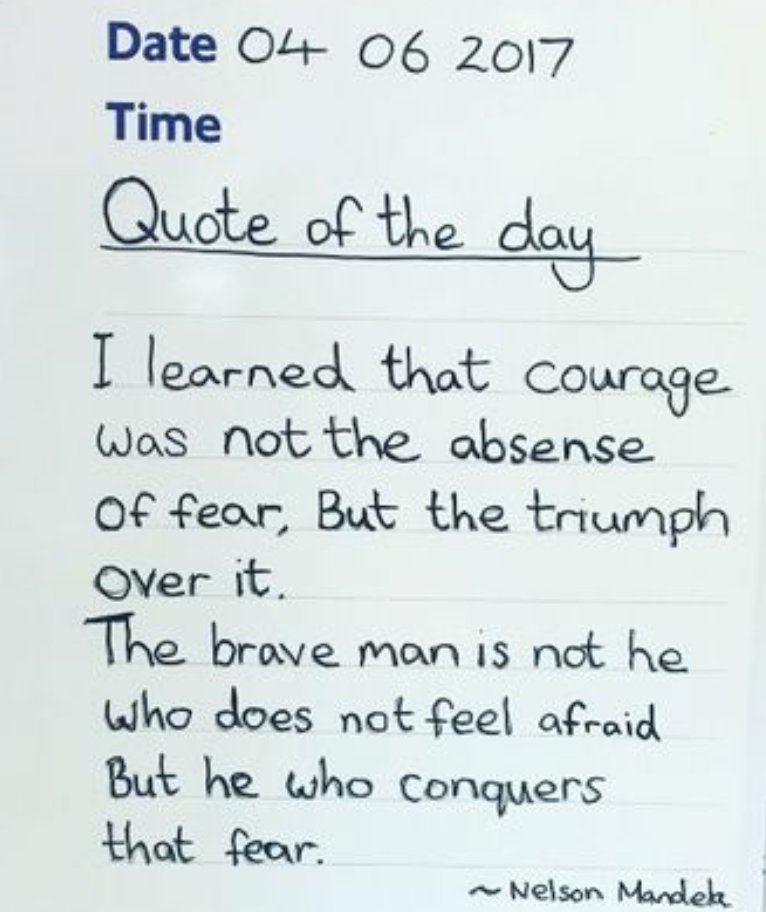 Date 04 06 2017
Time
Quote of the day
I learned that courage
was not the absense
Of fear, But the triumph
Over it.
The brave man is not he
Who does not feel afraid
But he who conquers
that fear.
~ Nelson Mandela